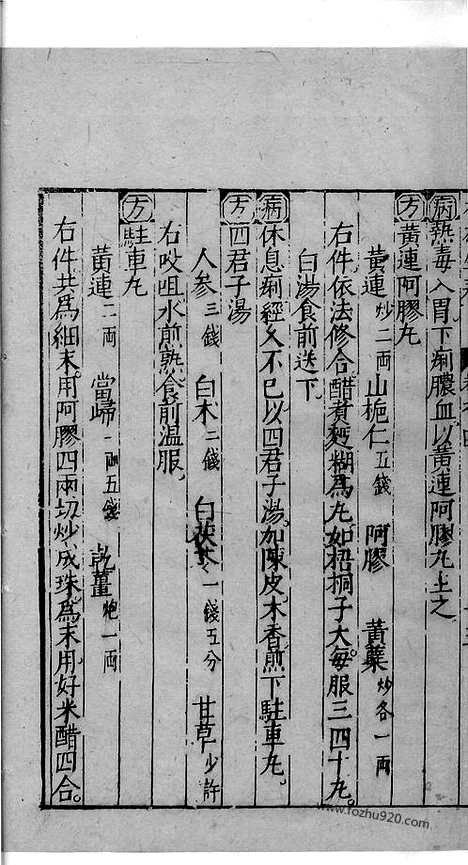 病熱毒入胃下痢膿血以黃連阿膠丸主之
方黃連阿膠丸
黃連炒二兩 山梔仁五錢 阿膠 黃蘗炒各一兩
右件依法修合醋煮麪糊為丸如梧桐子大每服三四十丸。
白湯食前送下
病休息痢經久不已以四君子湯。加陳皮。木香煎下駐車丸。
方四君子湯
人參三錢 白朮二錢 白茯苓一錢五分 甘草少許
右㕮咀水煎熟食前温服。
方駐車丸
黃連二兩 當歸一兩五錢 乾薑炮一兩
右件共為細末。用阿膠四兩切炒成珠。為末用好米醋四合。
www.fozhu920.com